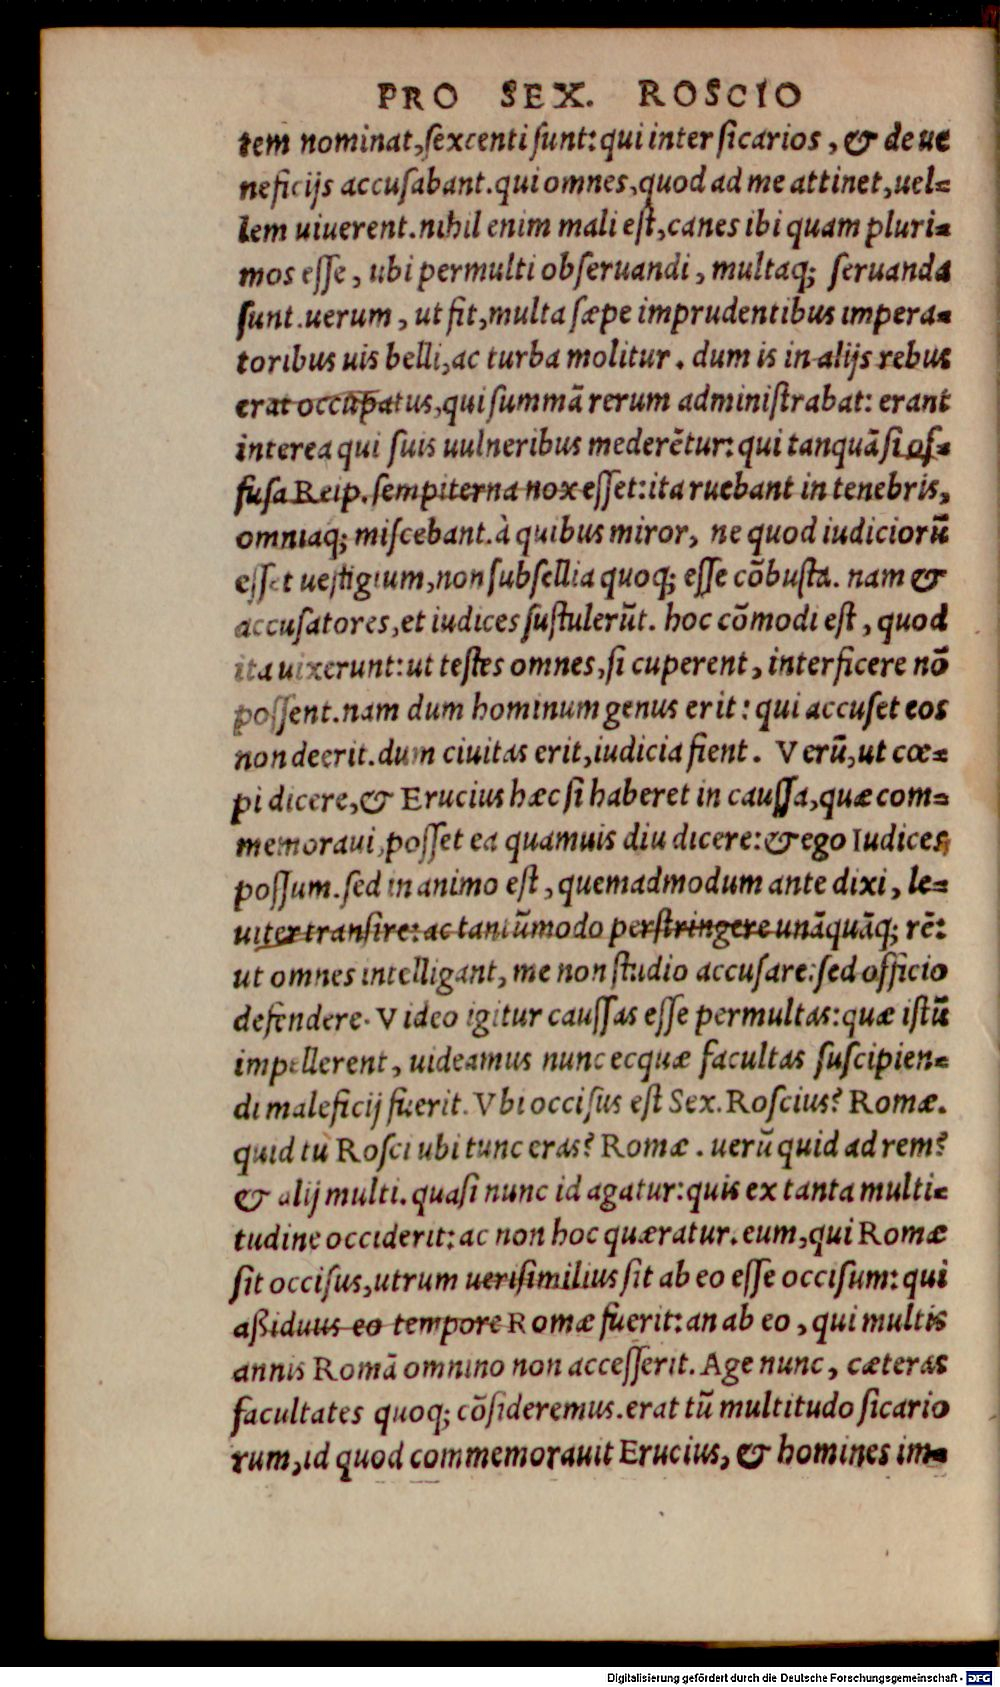 PRO SEX. ROSCIO
tem nominat, sexcenti sunt: qui inter sicarios, & de ue
neficijs accusabant. qui omnes, quod ad me attinet, uel-
lem uiuerent. nihil enim mali est, canes ibi quam pluri-
mos esse, ubi permulti obseruandi, multaq; seruanda
sunt. uerum, ut fit, multa sæpe imprudentibus impera-
toribus uis belli, ac turba molitur. dum is in alijs rebus
erat occupatus, qui summā rerum administrabat: erant
interea qui suis uulneribus mederētur: qui tanquā si of-
fusa Reip. sempiterna nox esset: ita ruebant in tenebris,
omniaq; miscebant. à quibus miror, ne quod iudiciorū
esset uestigium, non subsellia quoq; esse cōbusta. nam &
accusatores, et iudices sustulerūt. hoc cōmodi est, quod
ita uixerunt: ut testes omnes, si cuperent, interficere nō
possent. nam dum hominum genus erit: qui accuset eos
non deerit. dum ciuitas erit, iudicia fient. Verū, ut cœ-
pi dicere, & Erucius hæc si haberet in caussa, quæ com-
memoraui, posset ea quamuis diu dicere: & ego Iudices
possum. sed in animo est, quemadmodum ante dixi, le-
uiter transire: ac tantūmodo perstringere unāquāq; rē:
ut omnes intelligant, me non studio accusare: sed officio
defendere. Video igitur caussas esse permultas: quæ istū
impellerent, uideamus nunc ecquæ facultas suscipien-
di maleficij fuerit. Vbi occisus est Sex. Roscius? Romæ.
quid tu Rosci ubi tunc eras? Romæ. uerū quid ad rem?
& alij multi. quasi nunc id agatur: quis ex tanta multi-
tudine occiderit: ac non hoc quæratur. eum, qui Romæ
sit occisus, utrum uerisimilius sit ab eo esse occisum: qui
aßiduus eo tempore Romæ fuerit: an ab eo, qui multis
annis Romā omnino non accesserit. Age nunc, cæteras
facultates quoq; cōsideremus. erat tū multitudo sicario
rum, id quod commemorauit Erucius, & homines im-
Digitalisierung gefördert durch die Deutsche Forschungsgemeinschaft - DFG